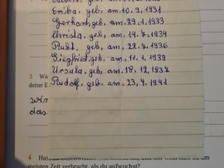 Erika, geb. am. 10. 9. 1931
Gerhart, geb. am. 29. 1. 1933
Christa, geb. am. 14. 7. 1934
Ruth, geb. am, 22. 7. 1936
Siegfried, geb. am. 11. 1. 1939
Ursula, geb. am. 18. 12. 1937
Rudolf, geb. am. 23. 4. 1941
3 Wa
deine E
das
4 Hast
gereiten Zeit verbracht, als du aufwuchsest?